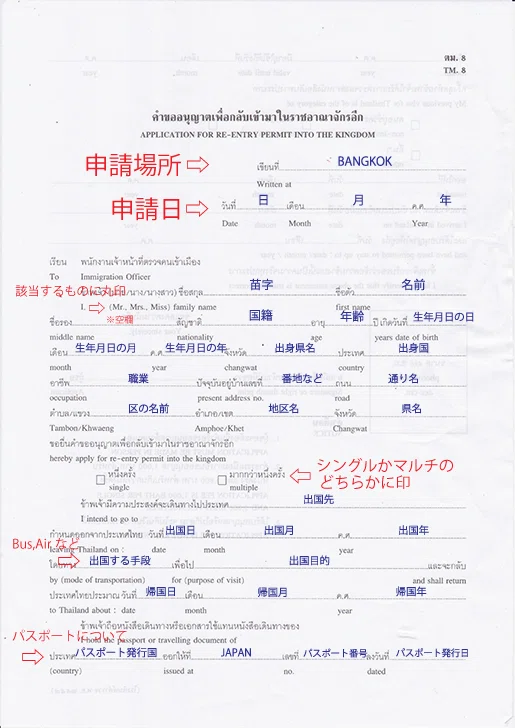 ตม. 8
TM. 8
คำขออนุญาตเพื่อกลับเข้ามาในราชอาณาจักรอีก
APPLICATION FOR RE-ENTRY PERMIT INTO THE KINGDOM
申請場所 ⇨ เขียนที่ BANGKOK
Written at
申請日 ⇨ วันที่ 日 เดือน 月 ค.ศ. 年
Date Month Year
เรียน พนักงานเจ้าหน้าที่ตรวจคนเข้าเมือง
To Immigration Officer
該当するものに丸印 นาง/นางสาว) ชื่อสกุล 苗字 ชื่อตัว 名前
I. ⇨ (Mr., Mrs., Miss) family name first name
ชื่อรอง ※空欄 สัญชาติ 国籍 อายุ 年齢 ปี เกิดวันที่ 生年月日の日
middle name nationality age years date of birth
เดือน 生年月日の月 ค.ศ. 生年月日の年 จังหวัด 出身県名 ประเทศ 出身国
month year changwat country
อาชีพ 職業 ปัจจุบันอยู่บ้านเลขที่ 番地など ถนน 通り名
occupation present address no. road
ตำบล/แขวง 区の名前 อำเภอ/เขต 地区名 จังหวัด 県名
Tambon/Khwaeng Amphoe/Khet Changwat
ขอยื่นคำขออนุญาตเพื่อกลับเข้ามาในราชอาณาจักรอีก
hereby apply for re-entry permit into the kingdom
หนึ่งครั้ง มากกว่าหนึ่งครั้ง ⇦ シングルかマルチの
single multiple どちらかに印
ข้าพเจ้ามีความประสงค์จะเดินทางไปประเทศ 出国先
I intend to go to
กำหนดออกจากประเทศไทย วันที่ 出国日 เดือน 出国月 ค.ศ. 出国年
Bus,Air など
leaving Thailand on : date month year
โดยทาง ⇨ 出国する手段 เพื่อไป 出国目的 และจะกลับ
by (mode of transportation) for (purpose of visit) and shall return
ประเทศไทยประมาณ วันที่ 帰国日 เดือน 帰国月 ค.ศ. 帰国年
to Thailand about : date month year
ข้าพเจ้าถือหนังสือเดินทางหรือเอกสารใช้แทนหนังสือเดินทางของ
パスポートについて
I hold the passport or travelling document of
⇨ ประเทศ パスポート発行国 ออกให้ที่ JAPAN เลขที่ パスポート番号 ลงวันที่ パスポート発行日
(country) issued at no. dated